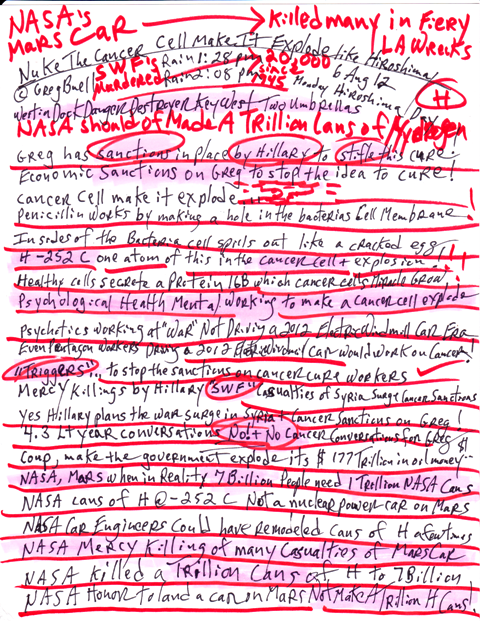 NASA's Mars Car → Killed many in Fiery LA Wrecks
Nuke The Cancer Cell Make It Explode Like Hiroshima
@ Greg Buell SWF's Murdered Rain 1:28 pm Rain 2:08 pm > 20,000 Since 1945 6 Aug 12 Monday Hiroshima Day
Westin Dock Danger Destroyer Key West Two Umbrellas H
NASA should of Made A Trillion Cans of Hydrogen
Greg has sanctions in place by Hillary to stifle this cure!
Economic Sanctions on Greg to stop the idea to cure!
cancer cell make it explode
Penicillin works by making a hole in the bacterias Cell Membrane!
Insides of the Bacteria cell spills out like a cracked egg!
H -252 C one atom of this in the cancer cell + explosion!!
Healthy cells secrete a Protein 16B which cancer cells Miracle Grow!
Psychological Health Mental working to make a cancer cell explode
Psychotics working at "WAR" Not Driving a 2012 Electric Windmill Car Era
Even Pentagon Workers Driving a 2012 Electric Windmill Car would work on Cancer!
"Triggers" .. to stop the sanctions on cancer cure workers
Mercy Killings by Hillary "SWF" Casualties of Syria Surge Cancer Sanctions
Yes Hillary plans the war surge in Syria + Cancer Sanctions on Greg!
4.3 Lt year conversations No! + No Cancer Conversations for Greg $1
Coup, make the government explode its $ 177 Trillion in oil money
NASA, Mars when in Reality 7 Billion People need 1 Trillion NASA Cans
NASA cans of H @ -252 C Not a nuclear power car on Mars
NASA Car Engineers Could have Remodeled Cans of H a few times
NASA Mercy Killing of many Casualties of Mars Car
NASA killed a Trillion Cans of H to 7 Billion!
NASA Honor to land a car on Mars Not Make A Trillion H Cans!